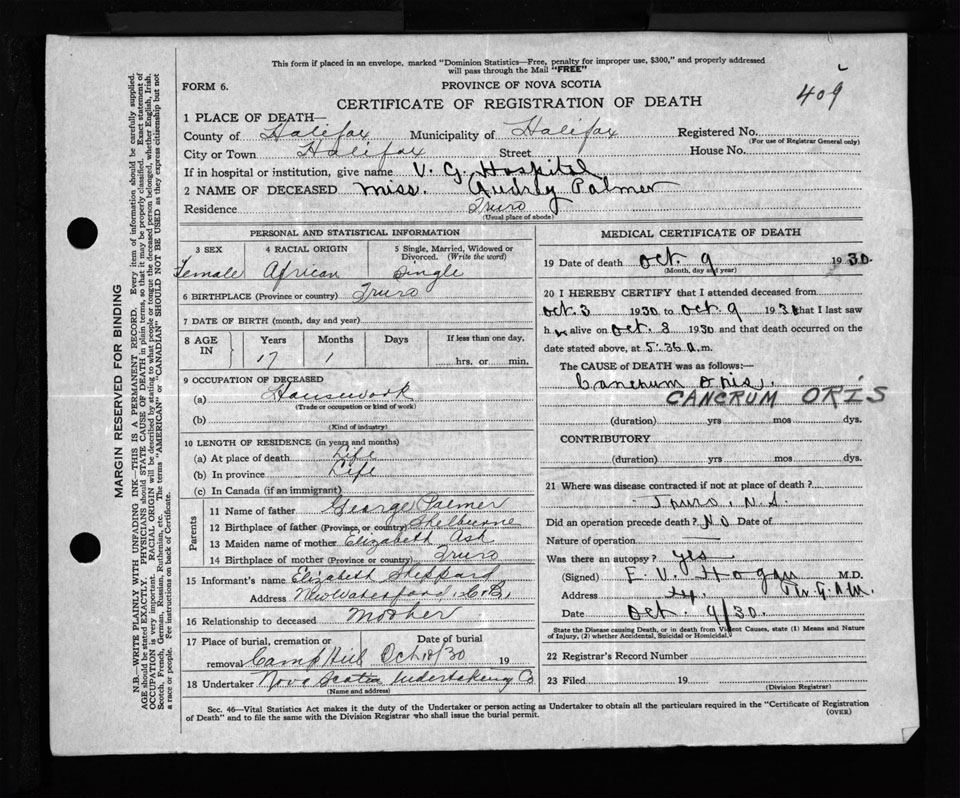 This form if placed in an envelope, marked "Dominion Statistics—Free, penalty for improper use, $300," and properly addressed
will pass through the Mail "FREE"
FORM 6.
PROVINCE OF NOVA SCOTIA
409
CERTIFICATE OF REGISTRATION OF DEATH
1 PLACE OF DEATH—
County of Halifax Municipality of Halifax Registered No.
(For use of Registrar General only)
City or Town Halifax Street House No.
If in hospital or institution, give name V. G. Hospital
2 NAME OF DECEASED Miss. Audrey Palmer
Residence Truro
(Usual place of abode)
PERSONAL AND STATISTICAL INFORMATION
3 SEX 4 RACIAL ORIGIN 5 Single, Married, Widowed or Divorced. (Write the word)
Female African Single
6 BIRTHPLACE (Province or country) Truro
7 DATE OF BIRTH (month, day and year)
8 AGE IN Years Months Days If less than one day,
17 1 hrs. or min.
9 OCCUPATION OF DECEASED
(a) Housework
(Trade or occupation or kind of work)
(b)
(Kind of industry)
10 LENGTH OF RESIDENCE (in years and months)
(a) At place of death Life
(b) In province Life
(c) In Canada (if an immigrant)
Parents
11 Name of father George Palmer
12 Birthplace of father (Province, or country) Shelburne
13 Maiden name of mother Elizabeth Ash
14 Birthplace of mother (Province or country) Truro
15 Informant's name Elizabeth Sheppard
Address New Waterford, C.B.
16 Relationship to deceased Mother
17 Place of burial, cremation or removal Date of burial
Camp Hill Oct 10/30 19
18 Undertaker Nova Scotia Undertaking Co
(Name and address)
MEDICAL CERTIFICATE OF DEATH
19 Date of death Oct. 9 1930.
(Month, day and year)
20 I HEREBY CERTIFY that I attended deceased from
Oct. 3 1930 to Oct 9 1930 that I last saw
h alive on Oct. 8 1930 and that death occurred on the
date stated above, at 5.36 a.m.
The CAUSE OF DEATH was as follows:—
Cancrum Oris.
CANCRUM ORIS
(duration) yrs mos dys.
CONTRIBUTORY
(duration) yrs mos dys.
21 Where was disease contracted if not at place of death?
Truro, N.S.
Did an operation precede death? No Date of
Nature of operation —
Was there an autopsy? yes
(Signed) E. V. Hogan M.D.
Address
Date Oct. 9/30.
State the Disease causing Death, or in death from Violent Causes, state (1) Means and Nature
of Injury, (2) whether Accidental, Suicidal or Homicidal.
22 Registrar's Record Number
23 Filed 19
(Division Registrar)
Sec. 46—Vital Statistics Act makes it the duty of the Undertaker or person acting as Undertaker to obtain all the particulars required in the "Certificate of Registration
of Death" and to file the same with the Division Registrar who shall issue the burial permit.
(OVER)
MARGIN RESERVED FOR BINDING
N.B.—WRITE PLAINLY WITH UNFADING INK—THIS IS A PERMANENT RECORD. Every item of information should be carefully supplied.
AGE should be stated EXACTLY. PHYSICIANS should STATE CAUSE OF DEATH in plain terms, so that it may be properly classified. Exact statement of
OCCUPATION is very important. RACIAL ORIGIN will be described by stating to what people or tongue the deceased person belonged, whether English, Irish,
Scotch, French, German, Russian, Ruthenian, etc. The terms "AMERICAN" or "CANADIAN" SHOULD NOT BE USED as they express citizenship but not
a race or people. Fee instructions on back of Certificate.